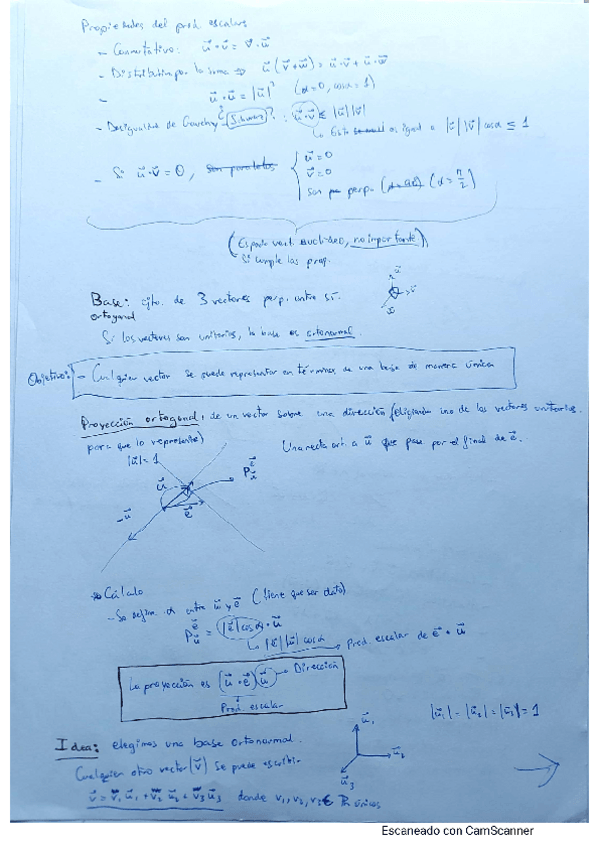 Propiedades del prod escalar
- Conmutativo: u⃗·v⃗ = v⃗·u⃗
- Distributiva por la suma ⇒ u⃗(v⃗+w⃗) = u⃗·v⃗ + u⃗·w⃗
- u⃗·u⃗ = |u⃗|² (α=0, cosα=1)
- Desigualdad de Cauchy-Schwarz?: u⃗·v⃗ ≤ |u⃗||v⃗|
↳ Esto es igual a |u⃗||v⃗|cosα ≤ 1
- Si u⃗·v⃗ = 0, son paralelos { u⃗=0
v⃗=0
son perp. (α=π/2)
(Espacio vect. euclídeo, no importante)
Si cumple las prop.
Base: cjto. de 3 vectores perp. entre sí.
ortogonal
Si los vectores son unitarios, la base es ortonormal.
Objetivo: - Cualquier vector se puede representar en términos de una base de manera única
Proyección ortogonal: de un vector sobre una dirección (eligiendo uno de los vectores unitarios.
para que lo represente)
Una recta ort. a u⃗ que pase por el final de e⃗.
|u⃗| = 1
u⃗
P
-u⃗
e⃗
Cálculo
- Se define α entre u⃗ y e⃗ (tiene que ser dato)
P = |e⃗|cosα · u⃗
↳ |e⃗||u⃗|cosα → Prod. escalar de e⃗ · u⃗
La proyección es (u⃗·e⃗)u⃗ → Dirección
Prod. escalar
|u⃗₁| = |u⃗₂| = |u⃗₃| = 1
Idea: elegimos una base ortonormal.
u⃗₁
u⃗₂
u⃗₃
Cualquier otro vector (v⃗) se puede escribir
v⃗ = v₁u⃗₁ + v₂u⃗₂ + v₃u⃗₃ donde v₁, v₂, v₃ ∈ ℝ únicos
Escaneado con CamScanner